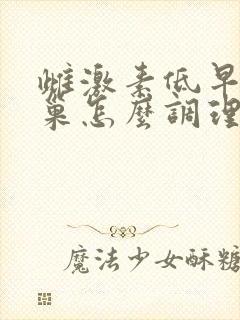 雌激素低早
巢怎麼調理
魔法少女酥糖